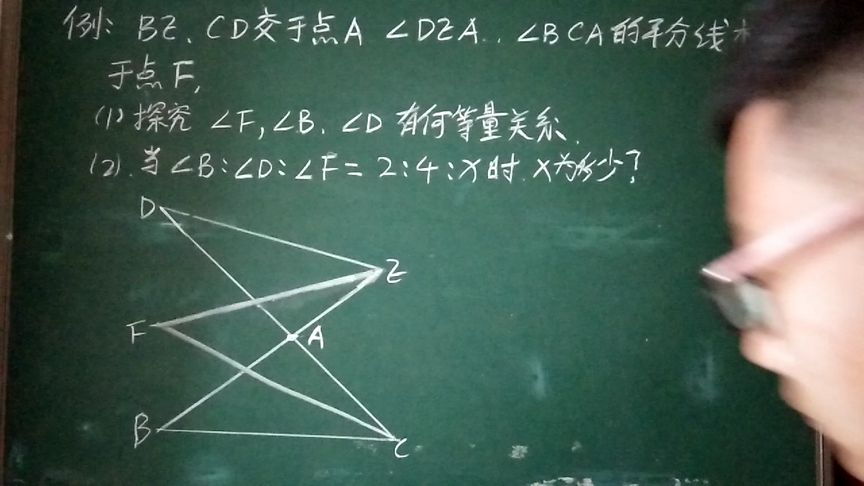 例: BE、CD交于点A ∠DEA、∠BCA的平分线
于点F,
(1) 探究 ∠F,∠B、∠D 有何等量关系.
(2). 当∠B:∠D:∠F=2:4:x时.x为多少?
D
E
F
A
B
C